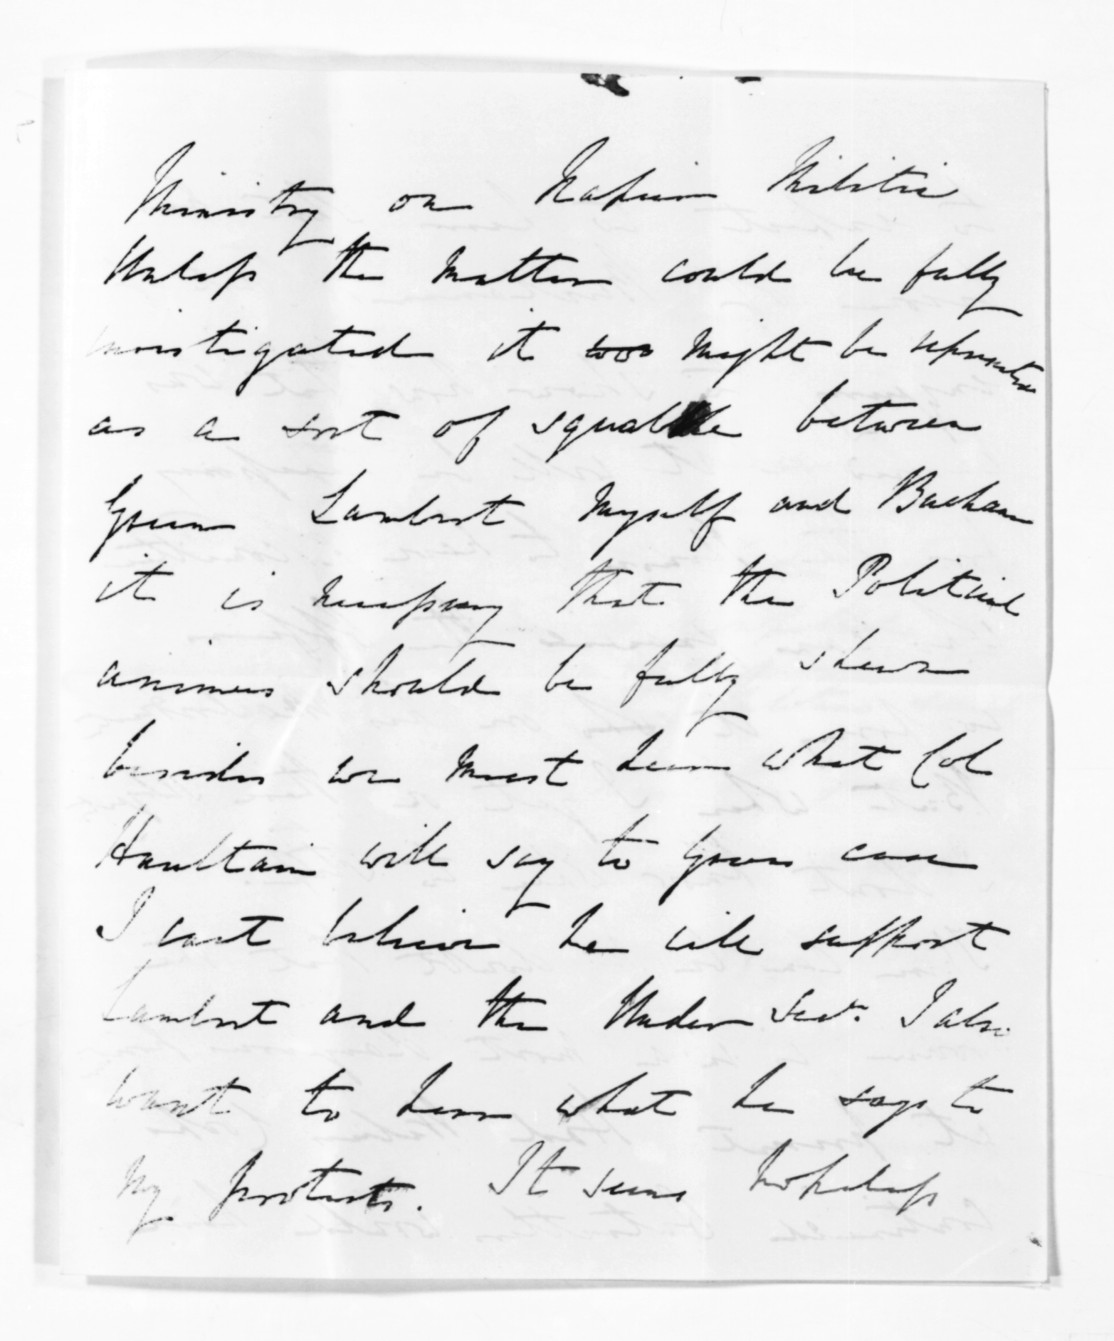 Ministry on Napier Militia
Unless the matter could be fully
investigated it too might be represented
as a sort of squabble between
Green Lambert myself and Buchan
it is necessary that the Political
animus should be fully shewn
besides we must hear what Col
Haultain will say to Greens case
I cant believe he will support
Lambert and the Under Secy. I also
want to hear what he says to
my protests. It seems hopeless